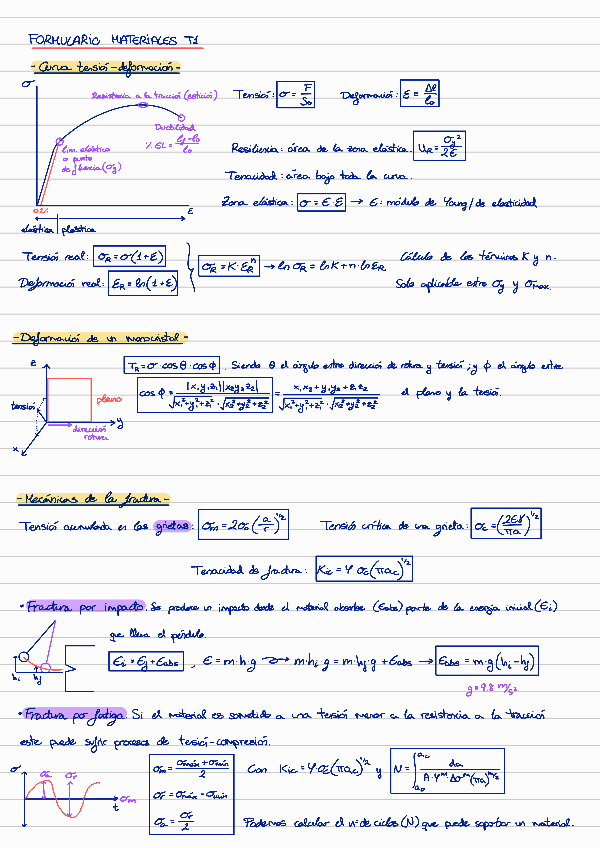 FORMULARIO MATERIALES T1
- Curva tensión-deformación -
σ
Resistencia a la tracción (estricción)
lím. elástico
o punto
de fluencia (σy)
Ductilidad
% EL = (lf - l0)/l0
0.2%
ε
elástica | plástica
Tensión: σ = F/S0
Deformación: ε = Δl/l0
Resiliencia: área de la zona elástica. UR = σy²/2E
Tenacidad: área bajo toda la curva.
Zona elástica: σ = E·ε → E: módulo de Young/de elasticidad
Tensión real: σR = σ(1+ε)
Deformación real: εR = ln(1+ε)
σR = K·εR^n → ln σR = ln K + n·ln εR
Cálculo de los términos K y n.
Solo aplicable entre σy y σmax.
- Deformación de un monocristal -
z
tensión
plano
y
dirección
rotura
x
TR = σ·cosθ·cosϕ. Siendo θ el ángulo entre dirección de rotura y tensión; y ϕ el ángulo entre
cos ϕ = |x1 y1 z1||x2 y2 z2| / √(x1²+y1²+z1²)·√(x2²+y2²+z2²) = x1x2 + y1y2 + z1z2 / √(x1²+y1²+z1²)·√(x2²+y2²+z2²) el plano y la tensión.
- Mecánicas de la fractura -
Tensión acumulada en las grietas: σm = 2σ0(a/r)^1/2
Tensión crítica de una grieta: σc = (2Eγ/πa)^1/2
Tenacidad de fractura: KIC = Y σc(πac)^1/2
• Fractura por impacto. Se produce un impacto donde el material absorbe (Eabs) parte de la energía inicial (Ei)
que lleva el péndulo.
hi hf
Ei = Ef + Eabs , E = m·h·g → m·hi·g = m·hf·g + Eabs → Eabs = m·g(hi - hf)
g = 9.8 m/s²
• Fractura por fatiga. Si el material es sometido a una tensión menor a la resistencia a la tracción
este puede sufrir procesos de tensión-compresión.
σ
σa σr
σm
t
σm = (σmáx + σmín)/2
σr = σmáx - σmín
σa = σr/2
Con KIC = Y σc(πac)^1/2 y N = ∫a0^ac da / A·Y^m Δσ^m (πa)^m/2
Podemos calcular el nº de ciclos (N) que puede soportar un material.